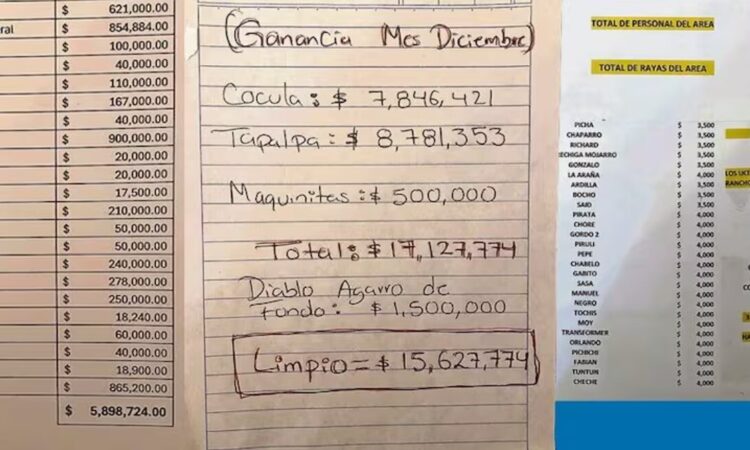 $ 621,000.00
ral $ 854,884.00
$ 100,000.00
$ 40,000.00
$ 110,000.00
$ 167,000.00
$ 40,000.00
$ 900,000.00
$ 20,000.00
$ 20,000.00
$ 17,500.00
$ 210,000.00
$ 50,000.00
$ 50,000.00
$ 240,000.00
$ 278,000.00
$ 250,000.00
$ 18,240.00
$ 60,000.00
$ 40,000.00
$ 18,900.00
$ 865,200.00
$ 5,898,724.00
(Ganancia Mes Diciembre)
Cocula: $ 7,846,421
Tapalpa: $ 8,781,353
Maquinitas: $ 500,000
Total: $ 17,127,774
Diablo Agarro de
Fondo: $ 1,500,000
Limpio = $ 15,627,774
TOTAL DE PERSONAL DEL AREA
TOTAL DE RAYAS DEL AREA
PICHA $ 3,500
CHAPARRO $ 3,500
RICHARD $ 3,500
RECHIGA MOJARRO $ 3,500
GONZALO $ 3,500
LA ARAÑA $ 4,000
ARDILLA $ 3,500
BOCHO $ 3,500
SAID $ 3,500
PIRATA $ 4,000
CHORE $ 4,000
GORDO 2 $ 4,000
PIRULI $ 4,000
PEPE $ 4,000
CHABELO $ 4,000
GABITO $ 4,000
SASA $ 4,000
MANUEL $ 4,000
NEGRO $ 4,000
TOCHIS $ 4,000
MOY $ 4,000
TRANSFORMER $ 4,000
ORLANDO $ 4,000
PICHICHI $ 4,000
FABIAN $ 4,000
TUNTUN $ 4,000
CHECHE $ 4,000
RANCHO